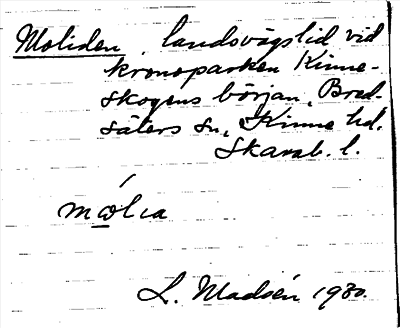 Moliden, landsvägslid vid
kronoparken Kinne-
skogens början, Bred-
säters sn, Kinne hd.
Skarab. l.
mωlıa
L. Madsén 1930.